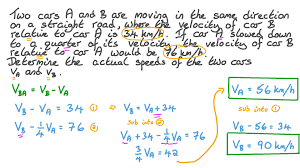 Two cars A and B are moving in the same direction
on a straight road, where the velocity of car B
relative to car A is 34 km/h. If car A slowed down
to a quarter of its velocity the velocity of car B
relative to car A would be 76 km/h.
Determine the actual speeds of the two cars
VA and VB.
VBA = VB - VA
VB - VA = 34 ①
VB - 1/4 VA = 76 ②
① ⇒ VB = VA + 34
sub into ②
VA + 34 - 1/4 VA = 76
3/4 VA = 42
VA = 56 km/h
sub into ①
VB - 56 = 34
VB = 90 km/h